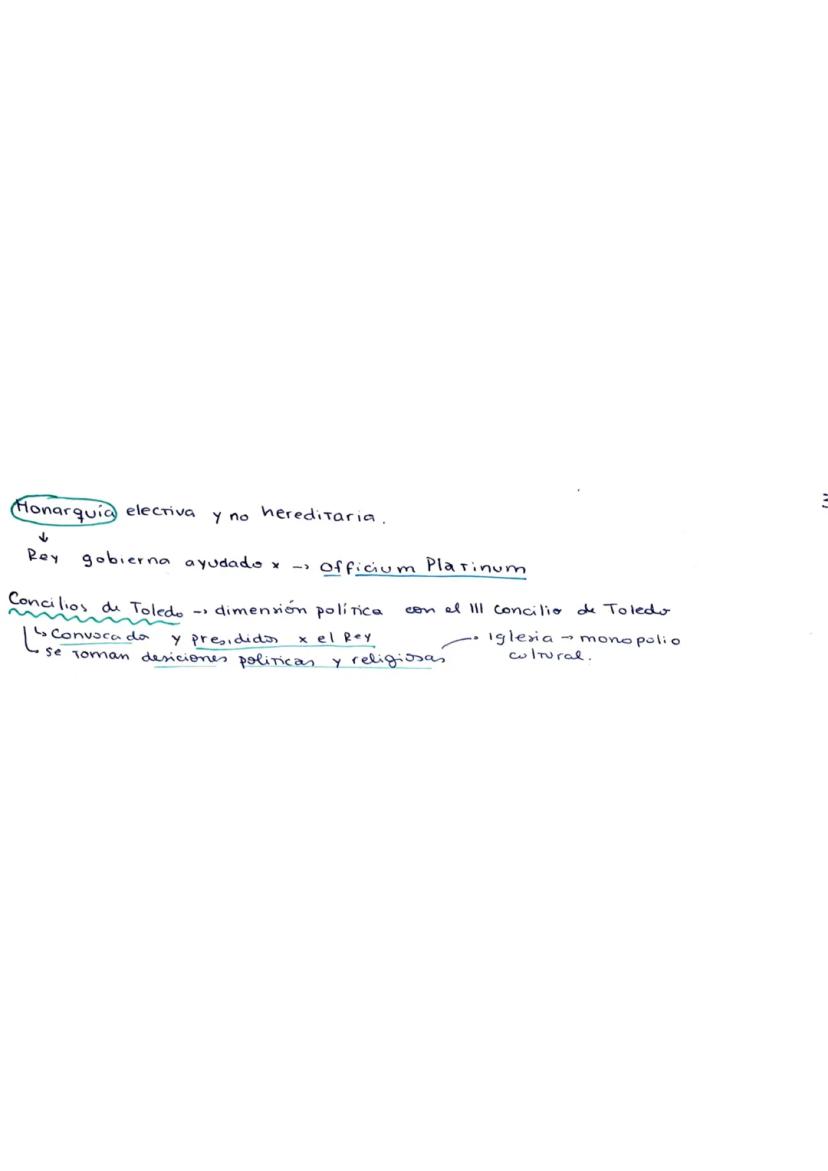 Monarquía electiva y no hereditaria.
↓
Rey gobierna ayudado x → Officium Platinum
Concilios de Toledo → dimensión política con el III concilio de Toledo
↳ Convocado y presididos x el Rey
↳ se toman desiciones politicas y religiosas → Iglesia → monopolio
cultural.